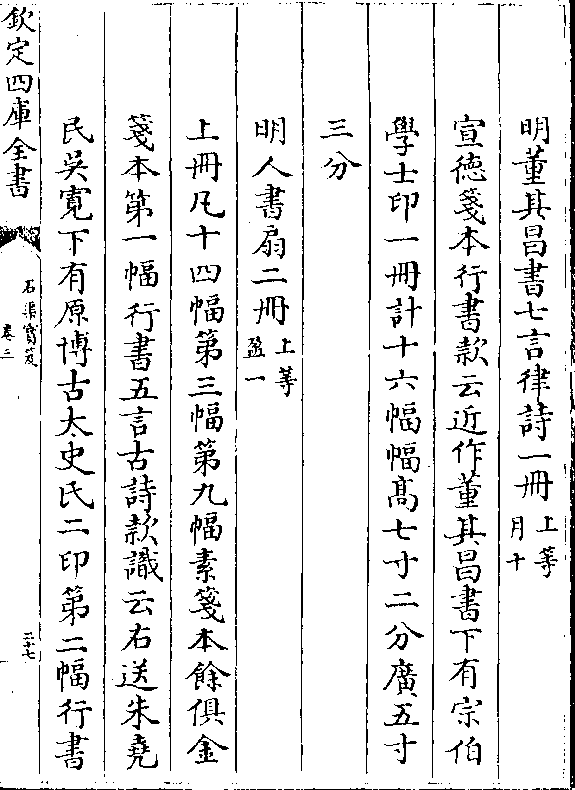 明董其昌書七言律詩一冊上等月十
宣德箋本行書款云近作董其昌書下有宗伯
學士印一冊計十六幅幅髙七寸二分廣五寸
三分
明人書扇二冊上等盈一
上冊凡十四幅第三幅第九幅素箋本餘俱金
箋本第一幅行書五言古詩款識云右送朱堯
民吳寛下有原博古太史氏二印第二幅行書
欽定四庫全書
石渠寳笈
卷三
二十七